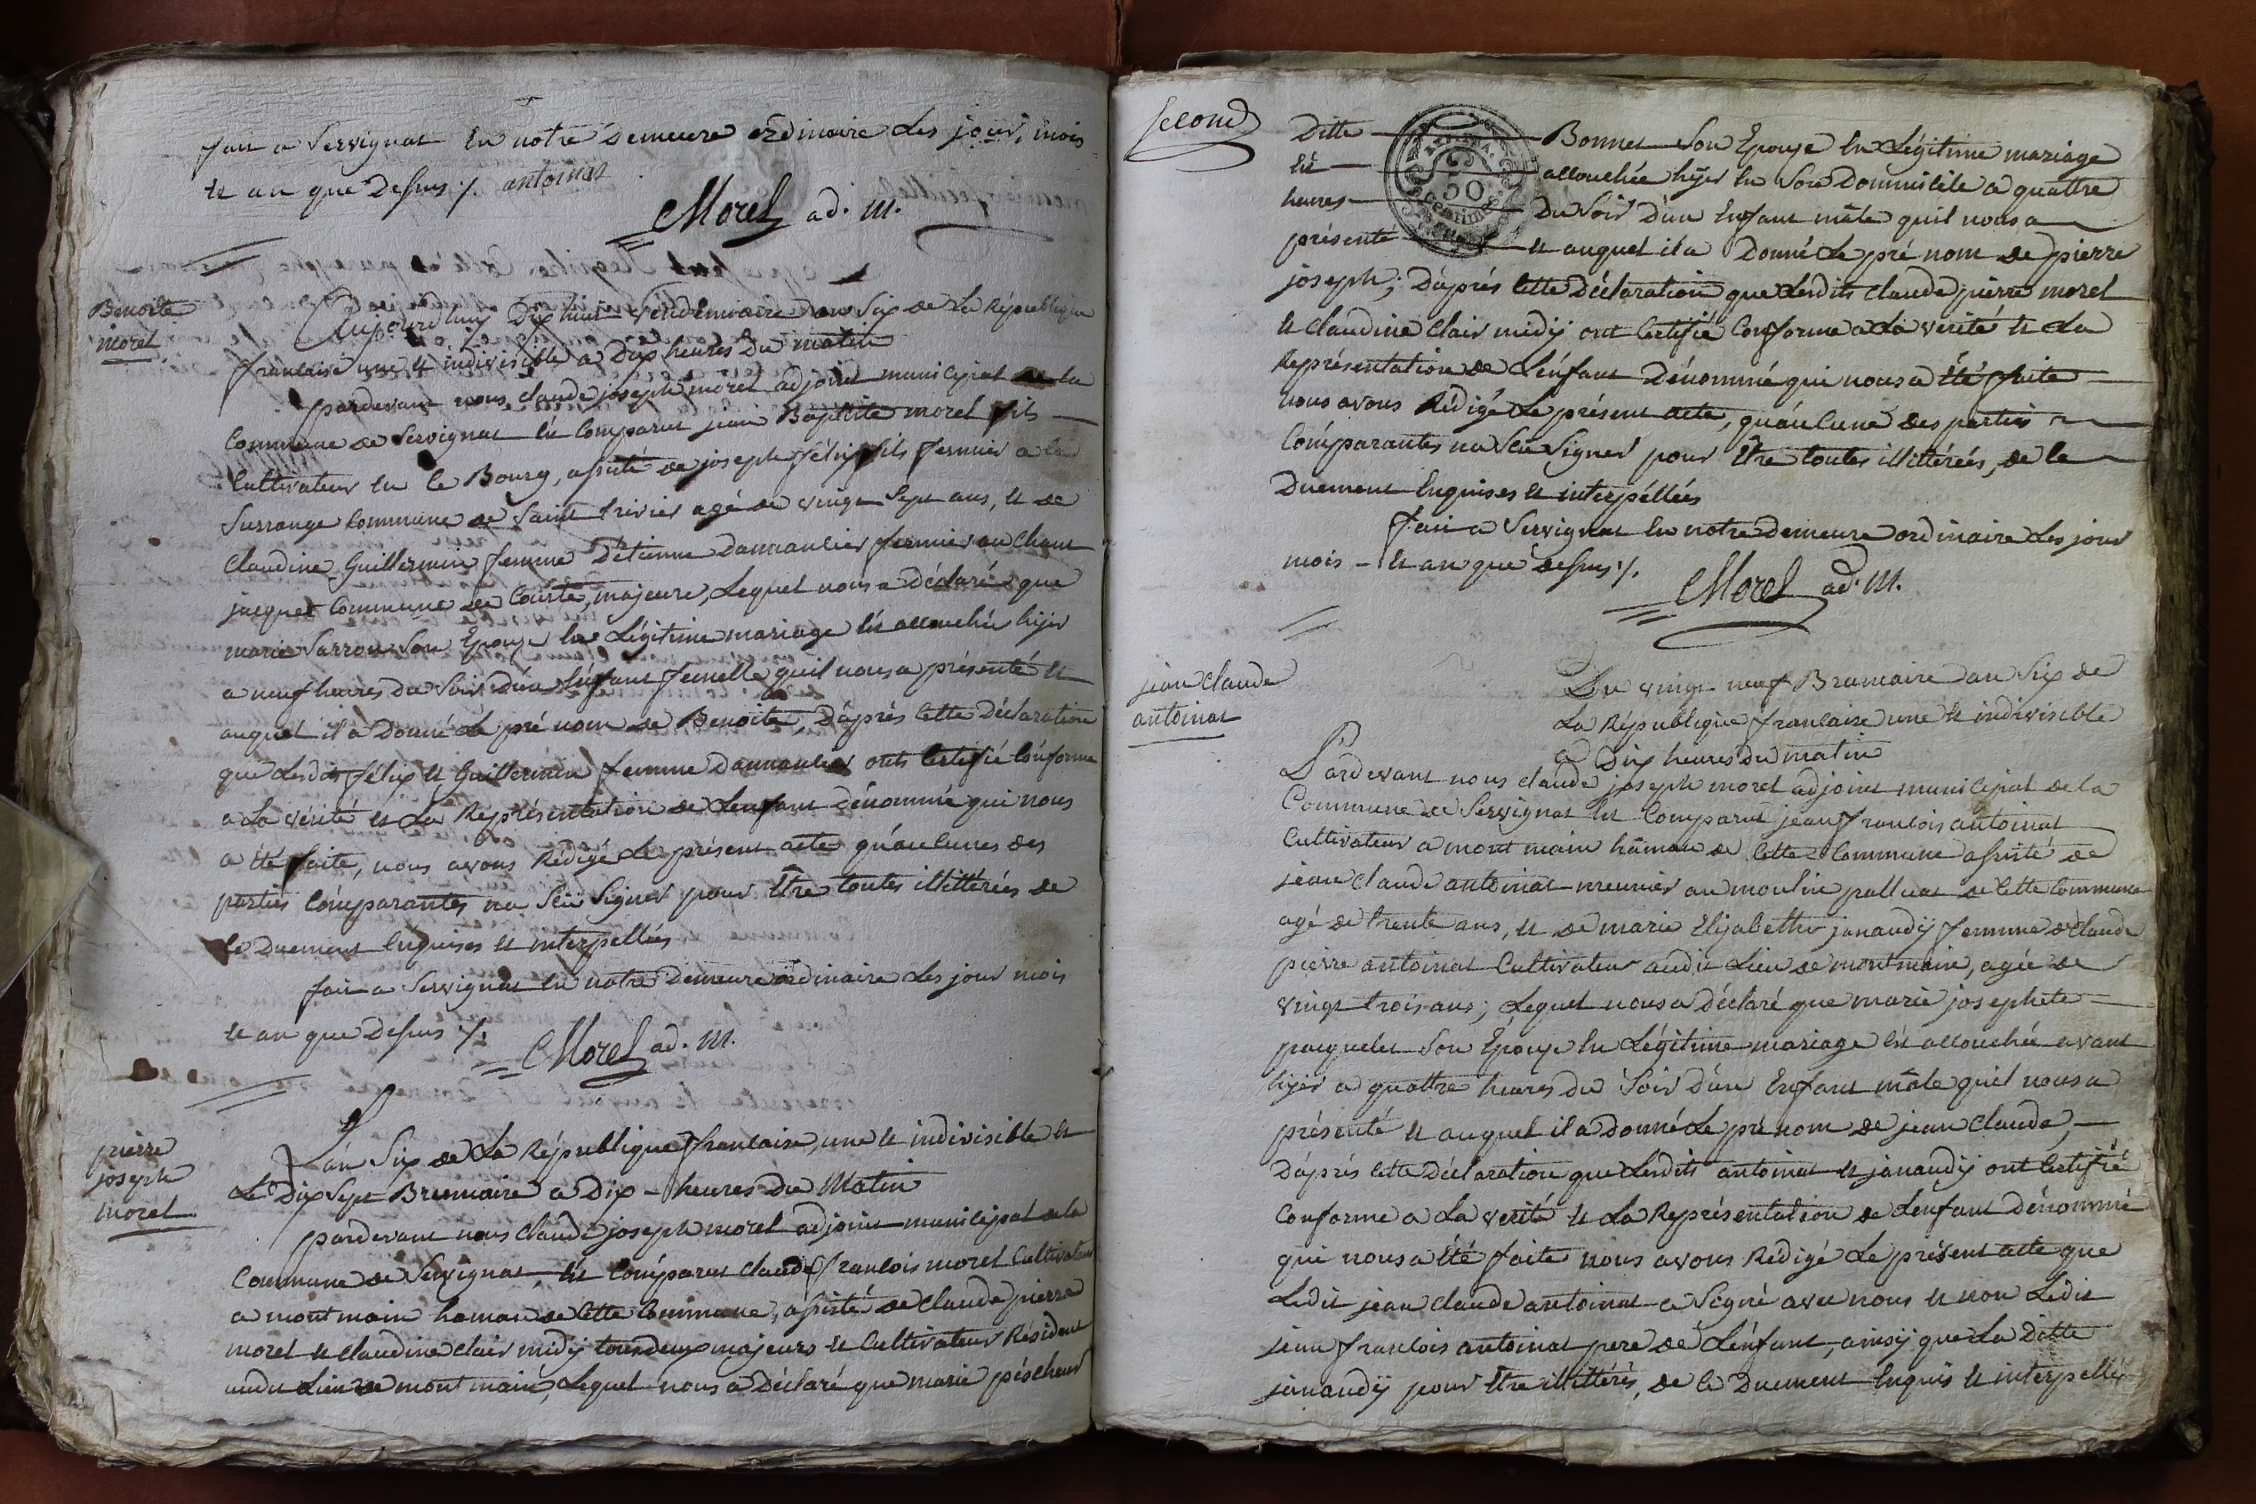 fait a Servignat En notre Demeure ordinaire Les jour, mois
et an que Dessus ./. antoinat
Morel ad. M.
Benoite
morel
Aujourd'huy Dix huit vendemiaire an Six de La République
francaise une et indivisible a Dix heures Du matin
pardevant nous claude joseph morel adjoint municipal de la
Commune de Servignat Est Comparut jean Baptiste morel fils
Cultivateur en le Bourg, assisté de joseph félix fils fermier a la
Surrange Commune de Saint trivier agé de vingt Sept ans, et de
claudine Guillermin femme D'étienne Dannancier fermier au Chant
jacquet Commune de Courte, majeure, Lequel nous a Déclaré que
marie Sarron Son Epouse En Légitime mariage Est accouchée hijer
a neuf heures Du Soir D'un Enfant femelle quil nous a présenté et
auquel il a Donné Le pré nom de Benoite, D'aprés Cette Déclaration
que Lesdits félix et Guillermin femme Dannancier onts Certifié Conforme
a La vérité et La Représentation de Lenfant Dénommé qui nous
a été faite, nous avons Rédigé Le présent acte qu'aucunes des
parties Comparantes na Sçü Signer pour Etre toutes illittérées de
Ce Duement Enquises et interpellées
fait a Servignat En notre Demeure ordinaire Les jour mois
et an que Dessus ./.
Morel ad. M.
pierre
joseph
morel
L'an Six de La République francaise, une et indivisible et
Le Dix Sept Brumaire a Dix heures Du Matin
pardevant nous Claude joseph morel adjoint municipal de la
Commune de Servignat, Est Comparut Claude francois morel Cultivateur
a montmain hamau de Cette Commune, assisté de Claude pierre
morel et claudine clair midÿ tous deux majeurs et Cultivateur Résident
audit Lieu de mont main, Lequel nous a Déclaré que marie péscheur
Second
Ditte Bonnet Son Epouse En Légitime mariage
Est accouchée hijer En Son Dommicile a quattre
heures Du Soir D'un Enfant mâle quil nous a
présenté et auquel il a Donné Le pré nom de pierre
joseph; D'aprés Cette Déclaration que Lesdits claude pierre morel
et Claudine Clair midÿ ont Certifié Conforme a La verité et La
Représentation de L'enfant Dénommé qui nous a Eté faite
nous avons Rédigé Le présent acte, qu'aucune des parties
Comparantes na Sçu Signer pour Etre toutes illittérées, de Ce
Duement Enquises et interpéllées
fait a Servignat En notre Demeure ordinaire Les jour
mois et an que Dessus ./.
Morel ad. M.
jean claude
antoinat
Du vingt neuf Brumaire an Six de
La République francaise une et indivisible
a Dix heures Du matin
Pardevant nous claude joseph morel adjoint municipal de la
Commune de Servignat Est Comparut jean francois antoinat
Cultivateur a mont main hâmau de Cette Commune assisté de
jean claude antoinat meunier au moulin palluat de Cette Commune
agé de trente ans, et de marie Elijabeth janaudÿ femme de claude
pierre antoinat Cultivateur audit Lieu de montmain, agée de
vingt trois ans; Lequel nous a Déclaré que marie josephete
pacquelet Son Epouse En Légitime mariage Est accouchée avant
hijer a quattre heures du Soir D'un Enfant mâle quil nous a
présenté et auquel il a Donné Le pré nom de jean Claude,
D'aprés Cette Déclaration que Lesdits antoinat et janaudÿ ont Certifié
Conforme a La verité et La Représentation de L'enfant Dénommé
qui nous a Eté faite nous avons Rédigé Le présent acte que
Ledit jean claude antoinat a Signé avec nous et non Ledit
jean francois antoinat pere de L'enfant, ainsÿ que La Ditte
janaudÿ pour Etre illittérés, de Ce Duement Enquis et interpellés
50
centimes